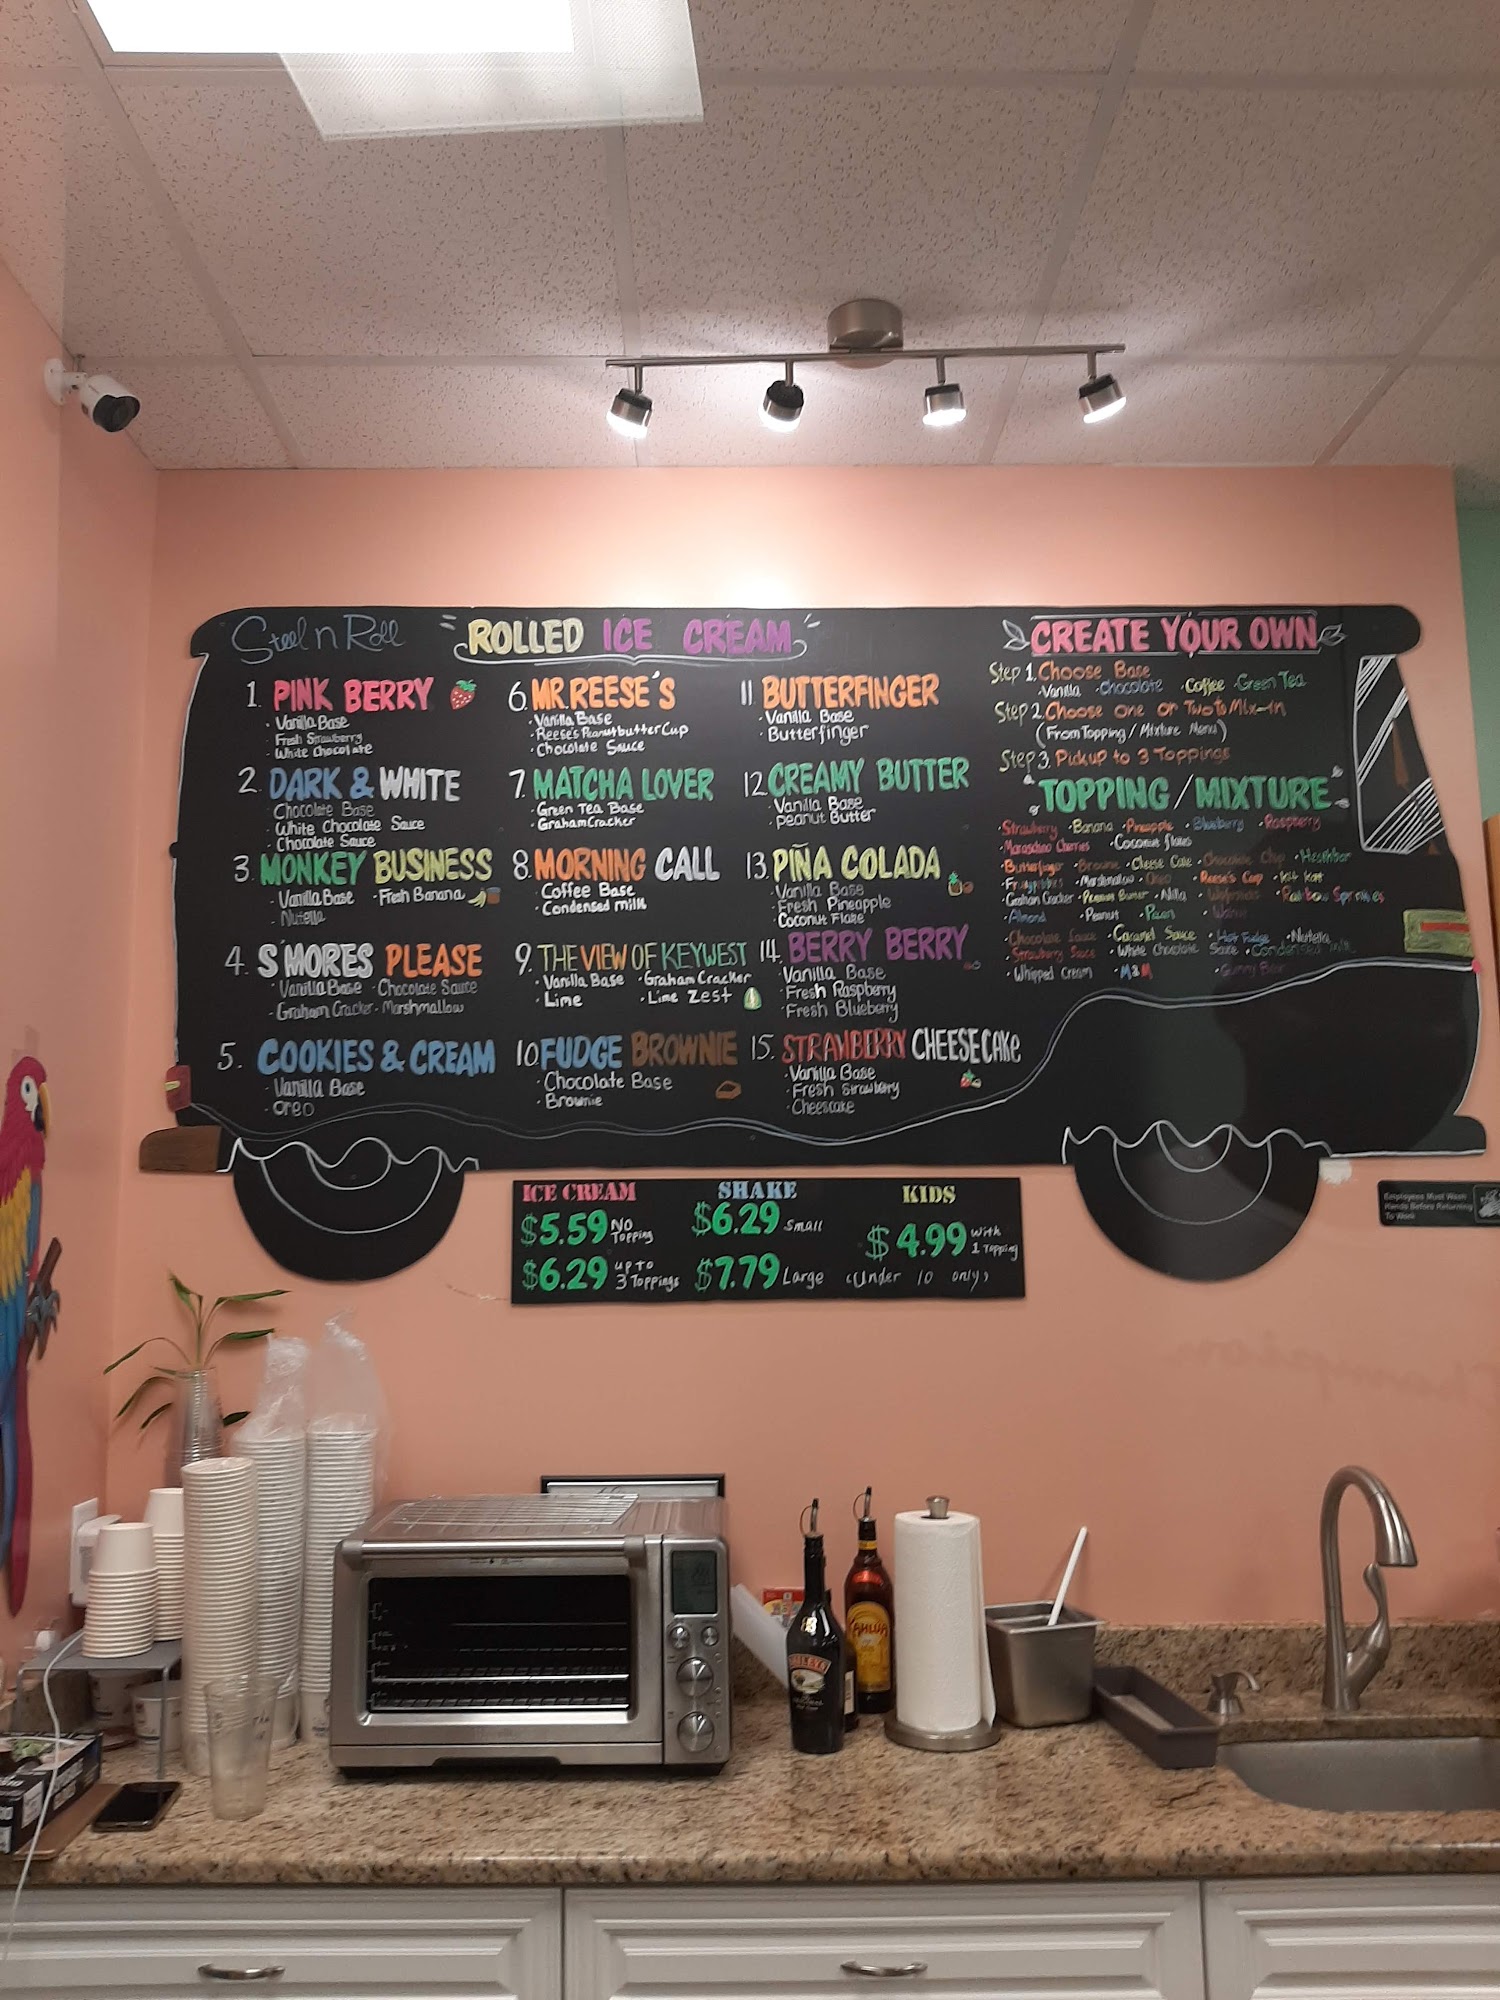 Steel n Roll
ROLLED ICE CREAM
1. PINK BERRY
· Vanilla Base
· Fresh Strawberry
· White Chocolate
2. DARK & WHITE
· Chocolate Base
· White Chocolate Sauce
· Chocolate Sauce
3. MONKEY BUSINESS
· Vanilla Base · Fresh Banana
· Nutella
4. S'MORES PLEASE
· Vanilla Base · Chocolate Sauce
· Graham Cracker · Marshmallow
5. COOKIES & CREAM
· Vanilla Base
· Oreo
6. MR. REESE'S
· Vanilla Base
· Reese's Peanutbutter Cup
· Chocolate Sauce
7. MATCHA LOVER
· Green Tea Base
· Graham Cracker
8. MORNING CALL
· Coffee Base
· Condensed milk
9. THE VIEW OF KEYWEST
· Vanilla Base · Graham Cracker
· Lime · Lime Zest
10. FUDGE BROWNIE
· Chocolate Base
· Brownie
11 BUTTERFINGER
· Vanilla Base
· Butterfinger
12. CREAMY BUTTER
· Vanilla Base
· Peanut Butter
13. PIÑA COLADA
· Vanilla Base
· Fresh Pineapple
· Coconut Flake
14. BERRY BERRY
· Vanilla Base
· Fresh Raspberry
· Fresh Blueberry
15. STRAWBERRY CHEESECAKE
· Vanilla Base
· Fresh Strawberry
· Cheescake
CREATE YOUR OWN
Step 1. Choose Base
· Vanilla · Chocolate · Coffee · Green Tea
Step 2. Choose one or Two to Mix-in
(From Topping / Mixture Menu)
Step 3. Pick up to 3 Toppings
TOPPING / MIXTURE
· Strawberry · Banana · Pineapple · Blueberry · Raspberry
· Maraschino Cherries · Coconut flakes
· Butterfinger · Brownie · Cheese Cake · Chocolate Chip · Heathbar
· Marshmallow · Oreo · Reese's Cup · Kit Kat
· Graham Cracker · Peanut Butter · Nilla · Rainbow Sprinkles
· Almond · Peanut · Pecan · Walnut
· Chocolate Sauce · Caramel Sauce · Hot Fudge · Nutella
· Strawberry Sauce · White Chocolate Sauce · Condensed milk
· Whipped Cream · M&M · Gummy Bear
ICE CREAM
$5.59 NO Topping
$6.29 up to 3 Toppings
SHAKE
$6.29 Small
$7.79 Large
KIDS
$4.99 with 1 Topping
(Under 10 only)
Employees Must Wash
Hands Before Returning
To Work
BAILEYS
KAHLUA